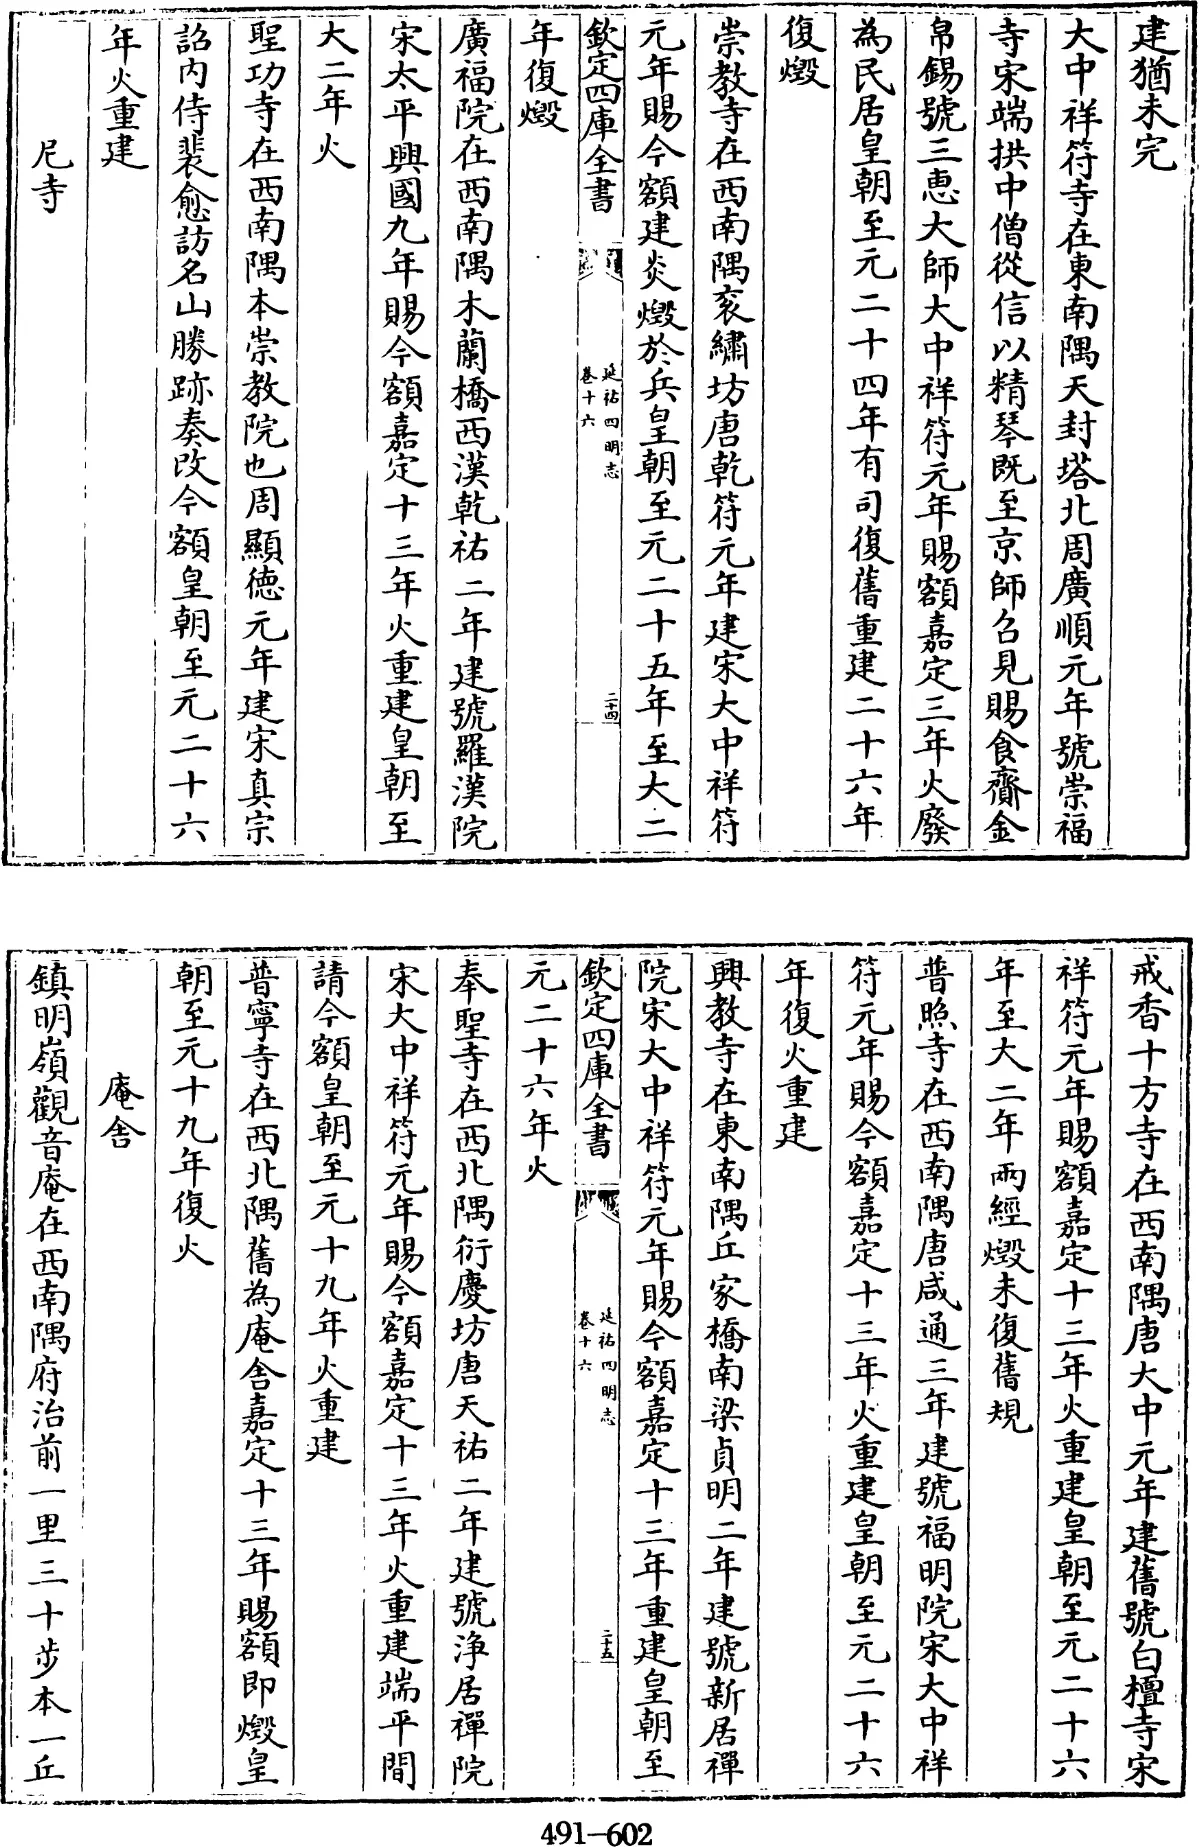 建猶未完
大中祥符寺在東南隅天封塔北周廣順元年號崇福
寺宋端拱中僧從信以精琴既至京師召見賜食齎金
帛錫號三惠大師大中祥符元年賜額嘉定三年火廢
為民居皇朝至元二十四年有司復舊重建二十六年
復燬
崇教寺在西南隅衮繡坊唐乾符元年建宋大中祥符
元年賜今額建炎燬於兵皇朝至元二十五年至大二
欽定四庫全書
延祐四明志
卷十六
二十四
年復燬
廣福院在西南隅木蘭橋西漢乾祐二年建號羅漢院
宋太平興國九年賜今額嘉定十三年火重建皇朝至
大二年火
聖功寺在西南隅本崇教院也周顯德元年建宋真宗
詔内侍裴愈訪名山勝跡奏改今額皇朝至元二十六
年火重建
尼寺
戒香十方寺在西南隅唐大中元年建舊號白檀寺宋
祥符元年賜額嘉定十三年火重建皇朝至元二十六
年至大二年兩經燬未復舊規
普照寺在西南隅唐咸通三年建號福明院宋大中祥
符元年賜今額嘉定十三年火重建皇朝至元二十六
年復火重建
興教寺在東南隅丘家橋南梁貞明二年建號新居禪
院宋大中祥符元年賜今額嘉定十三年重建皇朝至
欽定四庫全書
延祐四明志
卷十六
二十五
元二十六年火
奉聖寺在西北隅衍慶坊唐天祐二年建號浄居禪院
宋大中祥符元年賜今額嘉定十三年火重建端平間
請今額皇朝至元十九年火重建
普寧寺在西北隅舊為庵舍嘉定十三年賜額即燬皇
朝至元十九年復火
庵舍
鎮明嶺觀音庵在西南隅府治前一里三十步本一丘
491-602